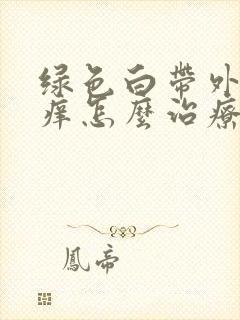 绿色白帶外
痒怎麼治療
鳳帝